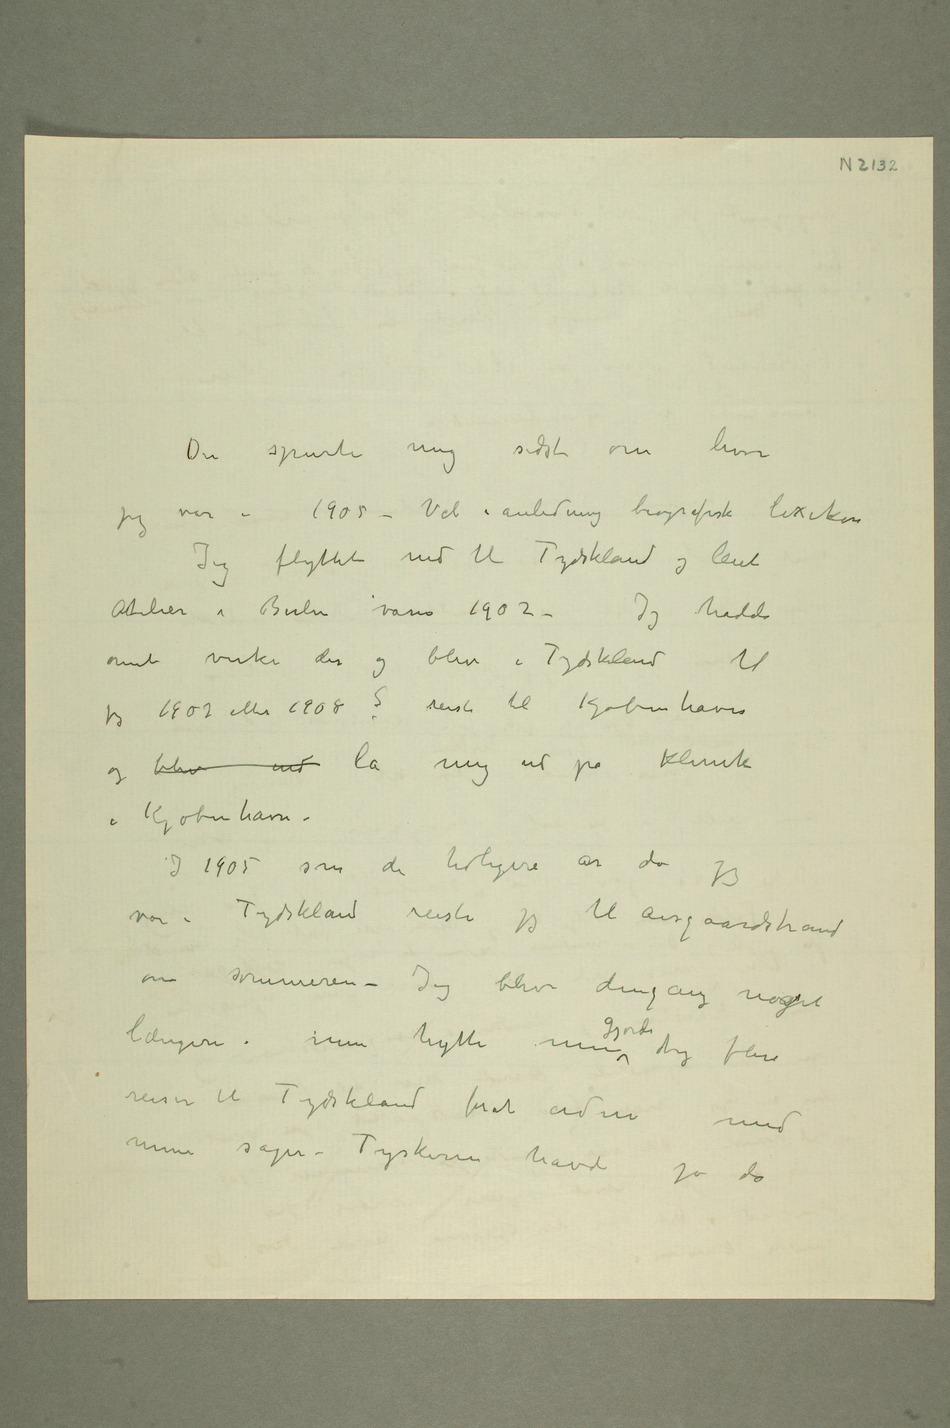 N 2132
Du spurte mig sidst om hvor
jeg var i 1905 – Vel i anledning biografisk lexikon
Jeg flyttet ned til Tydskland og leiet
Atelier i Berlin våren 1902 – Jeg hadde
mit virke der og blev i Tydskland til
jeg 1907 eller 1908 ? reiste til Kjøbenhavn
og blev ind la mig ind på Klinik
i Kjøbenhavn –
I 1905 som de tidligere år da jeg
var i Tydskland reiste jeg til Aasgaardstrand
om sommeren – Jeg blev dengang noget
længere i min hytte men gjorde dog flere
reiser til Tydskland for at ordne med
mine sager – Tyskerne havde jo da